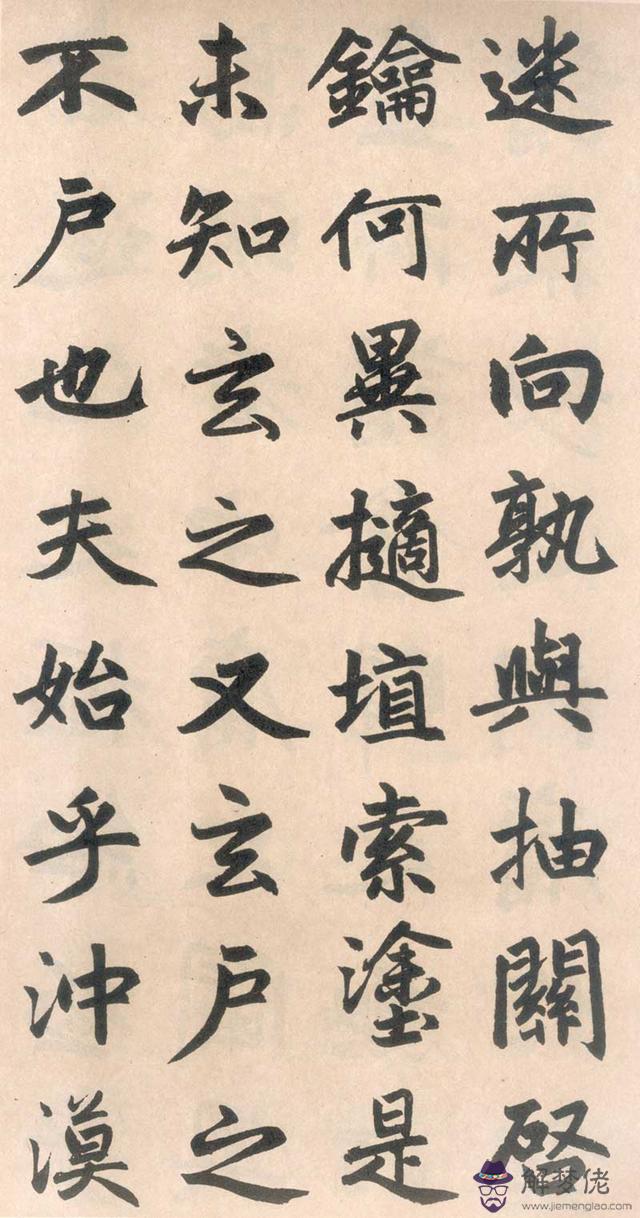 迷所向孰與抽關啓
鑰何異擿埴索塗是
未知玄之又玄戶之
不戶也夫始乎沖漠
解梦佬
www.jiemenglao.com